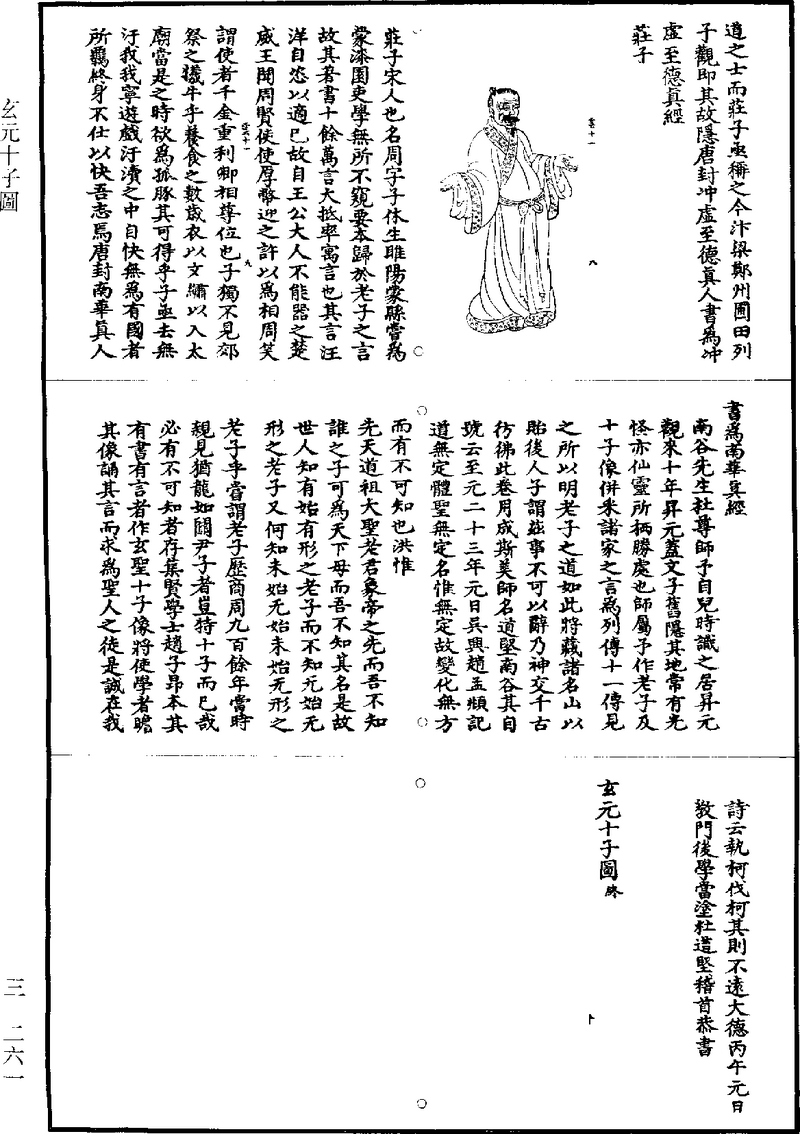 道之士而莊子亟稱之今汴梁鄭州圃田列
子觀即其故隱唐封冲虛至德真人書為冲
虛至德真經
莊子
莊子宋人也名周字子休生睢陽蒙縣嘗為
蒙漆園吏學無所不窺要本歸於老子之言
故其著書十餘萬言大抵率寓言也其言汪
洋自恣以適己故自王公大人不能器之楚
威王聞周賢使使厚幣迎之許以為相周笑
謂使者千金重利卿相尊位也子獨不見郊
祭之犧牛乎養食之數歲衣以文繡以入太
廟當是之時欲為孤豚其可得乎子亟去無
汙我我寧遊戲汙瀆之中自快無為有國者
所羈終身不仕以快吾志焉唐封南華真人
書為南華真經
南谷先生杜尊師予自兒時識之居昇元
觀來十年昇元蓋文子舊隱其地常有光
怪亦仙靈所栖勝處也師屬予作老子及
十子像併采諸家之言為列傳十一傳見
之所以明老子之道如此將藏諸名山以
貽後人子謂茲事不可以辭乃神交千古
彷彿此卷用成斯美師名道堅南谷其自
號云至元二十三年元日吳興趙孟頫記
道無定體聖無定名惟無定故變化無方
而有不可知也洪惟
先天道祖大聖老君象帝之先而吾不知
誰之子可為天下母而吾不知其名是故
世人知有始有形之老子而不知无始无
形之老子又何知未始无始未始无形之
老子乎嘗謂老子歷商周九百餘年當時
親見猶龍如關尹子者豈特十子而已哉
必有不可知者存集賢學士趙子昂本其
有書有言者作玄聖十子像將使學者瞻
其像誦其言而求為聖人之徒是誠在我
詩云執柯伐柯其則不遠大德丙午元日
教門後學當塗杜道堅稽首恭書
玄元十子圖 終
玄元十子圖
三 二六一